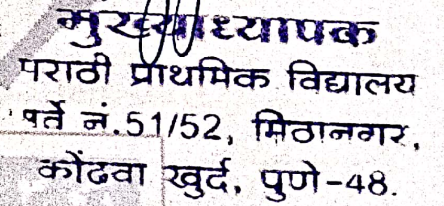 मुख्याध्यापक
मराठी प्राथमिक विद्यालय
सर्वे नं.51/52, मिठानगर,
कोंढवा खुर्द, पुणे-48.